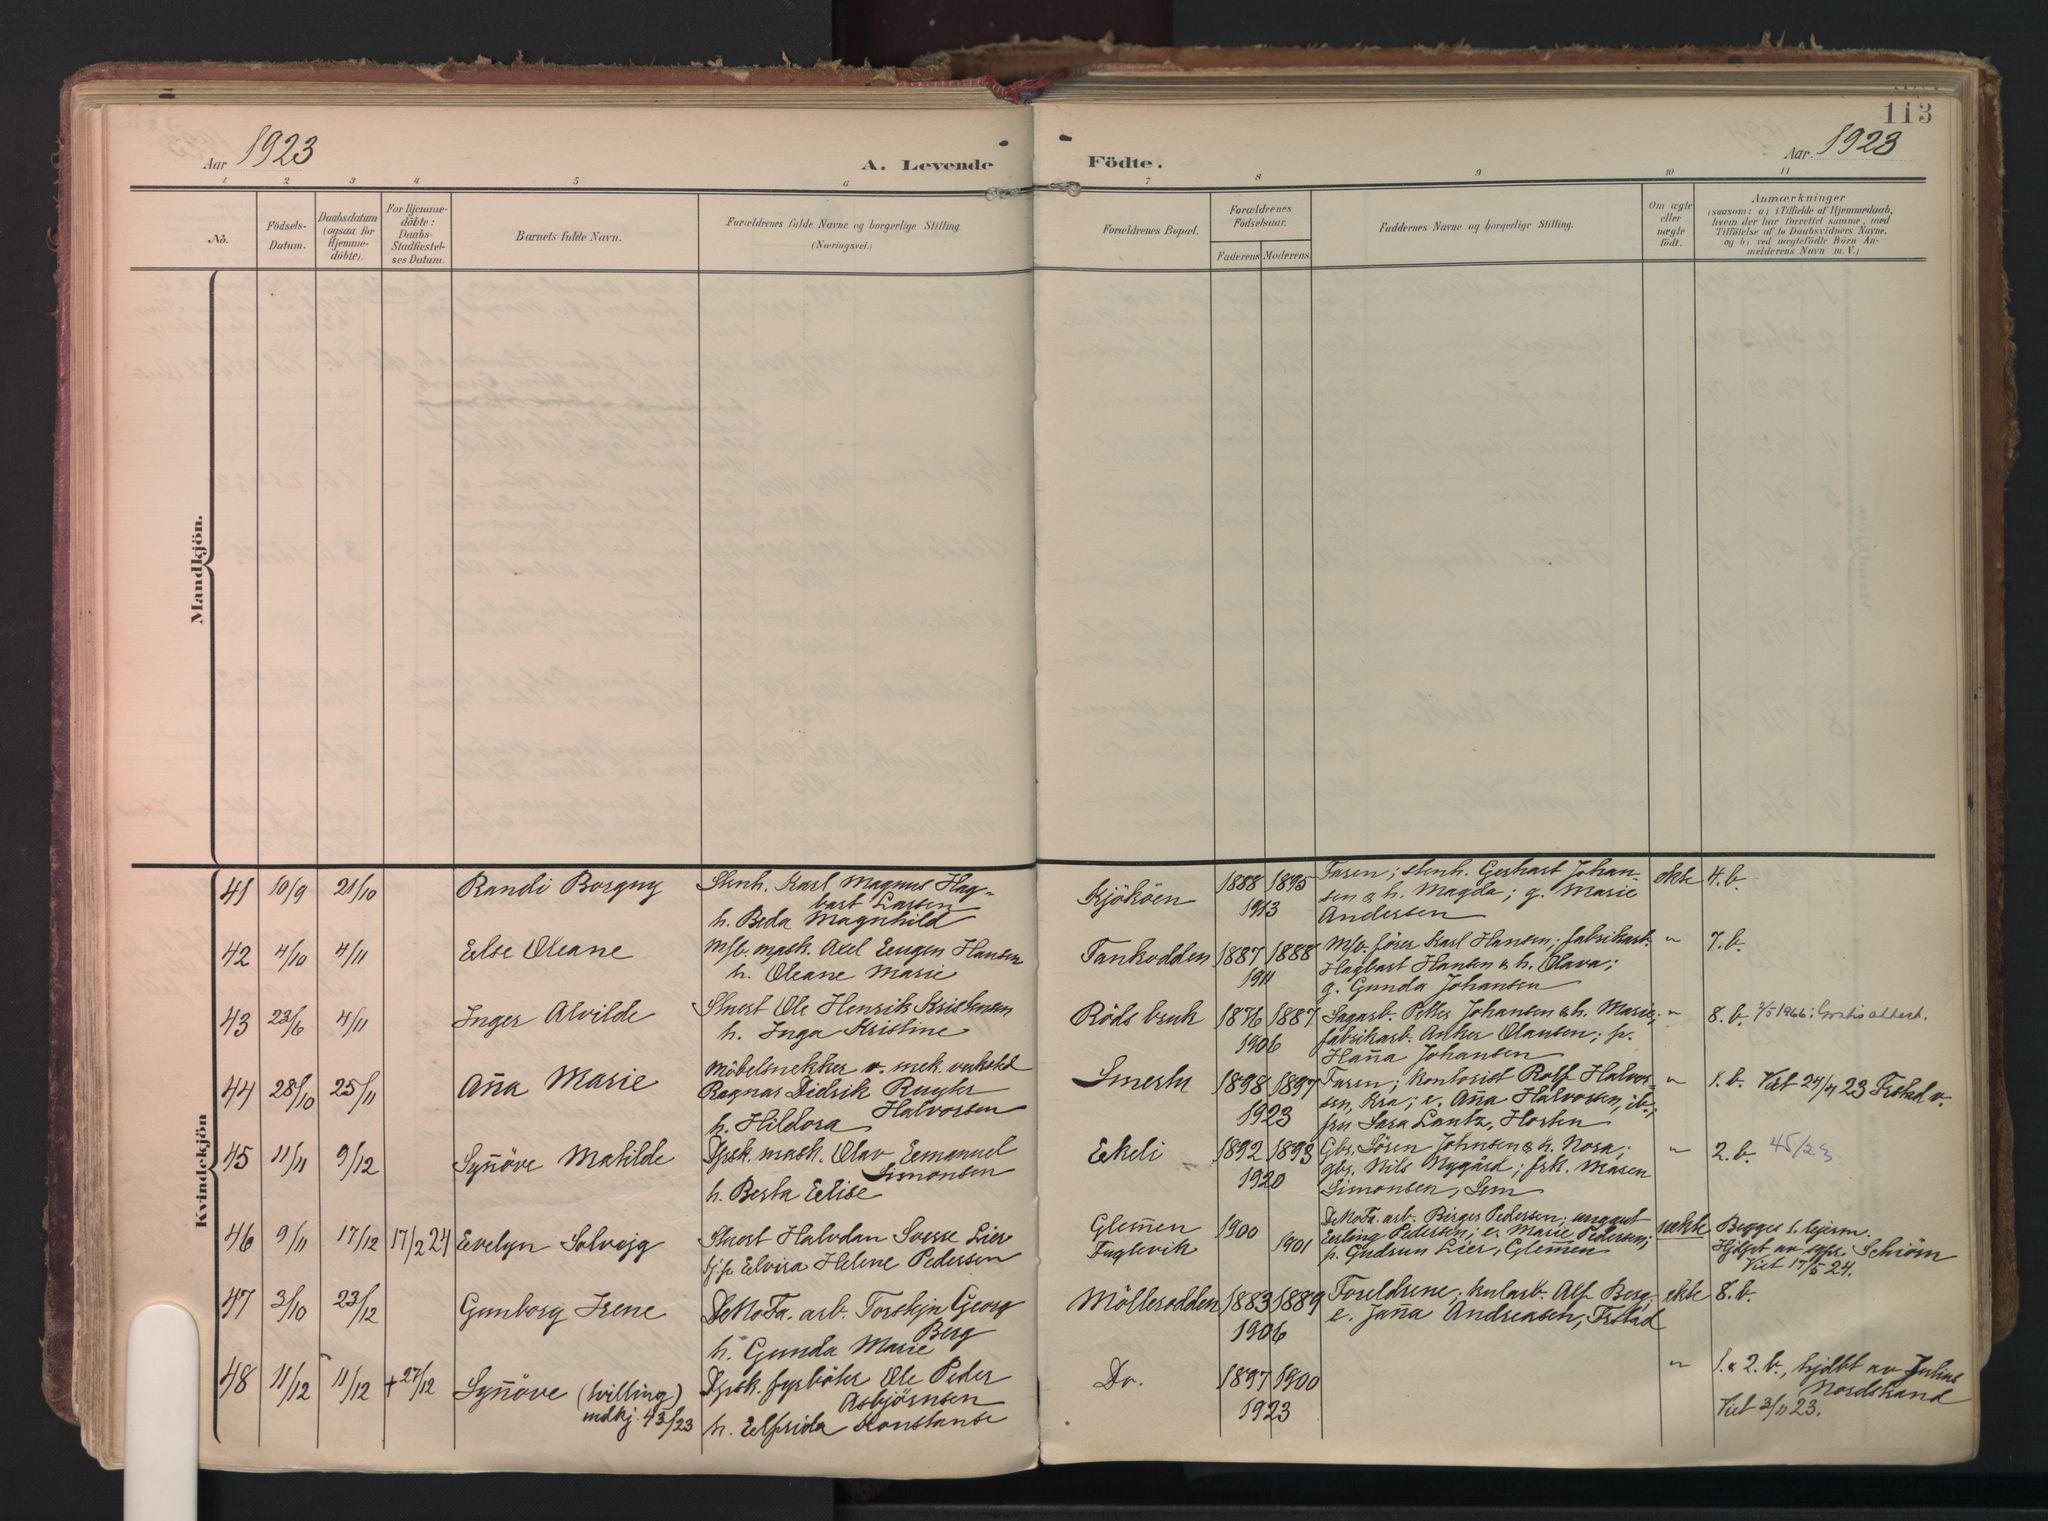 113
Aar 1923
A. Levende
Födte.
Aar 1923
1 2 3 4 5 6 7 8 9 10 11
No.
Födsels-
Datum.
Daabsdatum
(ogsaa for
Hjemme-
döbte).
For Hjemme-
döbte:
Daabs-
Stadfæstel-
ses Datum.
Barnets fulde Navn.
Forældrenes fulde Navne og borgerlige Stilling.
(Næringsvei.)
Forældrenes Bopæl.
Forældrenes
Födselsaar.
Faderens
Moderens
Faddernes Navne og borgerlige Stilling.
Om ægte
eller
uægte
födt.
Anmærkninger
(saasom: a) i Tilfælde af Hjemmedaab,
hvem der har forrettet samme, med
Tilföielse af to Daabsvidners Navne.
og b) ved uægtefödte Börn An-
melderens Navn m. V.)
Mandkjön.
Kvindekjön
41 10/9 21/10 Randi Borgny
Stenh. Karl Magnus Hag-
bart Larsen
h. Beda Magnhild
Kjököen 1888 1895
1913
Faren; stenh. Gerhart Johan-
sen & h. Magda; g. Marie
Andersen
ekte 4. b.
42 4/10 4/11 Else Oleane
Mfb. mask. Axel Eugen Hansen
h. Oleane Marie
Tankodden 1887 1888
1911
Mfb. förer Karl Hansen; fabrikarb.
Hagbart Hansen & h. Olava;
g. Gunda Johansen
" 7. b.
43 23/6 4/11 Inger Alvilde
Ole Henrik Kristensen
h. Inga Kristine
Röds bruk 1876 1887
1906
Sagarb. Petter Johansen & h. Marie;
fabrikarb. Anker Olausen; p.
Hanna Johansen
" 8. b. 2/5 1966: Gratis attest.
44 28/10 25/11 Anna Marie
Möbelsnekker v. mek. verksted
Ragnar Didrik Ruyter
Halvorsen
h. Hildora
Smertu 1898 1897
1923
Faren; kontorist Rolf Halvor-
sen, Kra; e. Anna Halvorsen, ib.;
fru Sara Lantz, Horten
" 1. b. Viet 24/4 23 Frstad v.
45 11/11 9/12 Synnöve Matilde
Dpsk. mask. Olav Emanuel
Simonsen
h. Berta Elise
Ekeli 1892 1893
1920
Gbr. Sören Johnsen & h. Nora;
gbr. Nils Nygård; frk. Maren
Simonsen, Sem
" 2. b. 45/23
46 9/11 17/12 17/2 24 Evelyn Solvejg
Halvdan Sverre Lier
pj. Elvira Helene Pedersen
Glemmen
Fuglevik
1900
1901
DeNoFa. arb. Birger Pedersen; unggut
Erling Pedersen; e. Marie Pedersen;
p. Gudrun Lier, Glemmen
uekte Begges 1. hjem.
Schiörn
Viet 17/5 24.
47 3/10 23/12 Gunborg Irene
DeNoFa. arb. Torstejn Georg
Berg
h. Gunda Marie
Mölleroddén 1883 1889
1906
Foreldrene; kularb. Alf Berg;
e. Janna Andreasen, Frstad
ekte 8. b.
48 11/12 11/12 + 27/12 Synnöve (tvilling)
mdkj. 43/23
Dpsk. fyrböter Ole Peder
Asbjörnsen
h. Elfrida Konstanse
Do. 1897 1900
1923
" 1. & 2. b., hjdbt av Julius
Nordstrand
Viet 3/11 23.